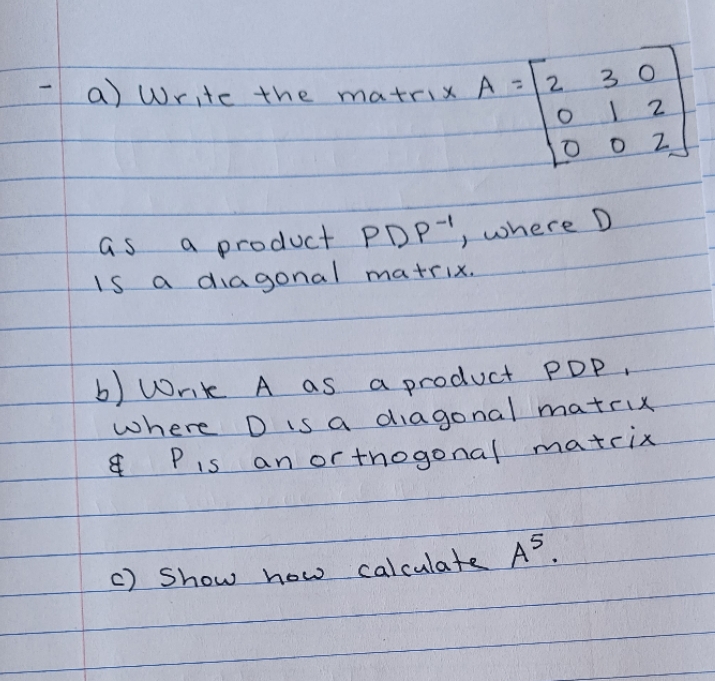 - a) Write the matrix A = [2 3 0
0 1 2
0 0 2]
as a product PDP⁻¹, where D
is a diagonal matrix.
b) Write A as a product PDP,
where D is a diagonal matrix
& P is an orthogonal matrix
c) Show how calculate A⁵.